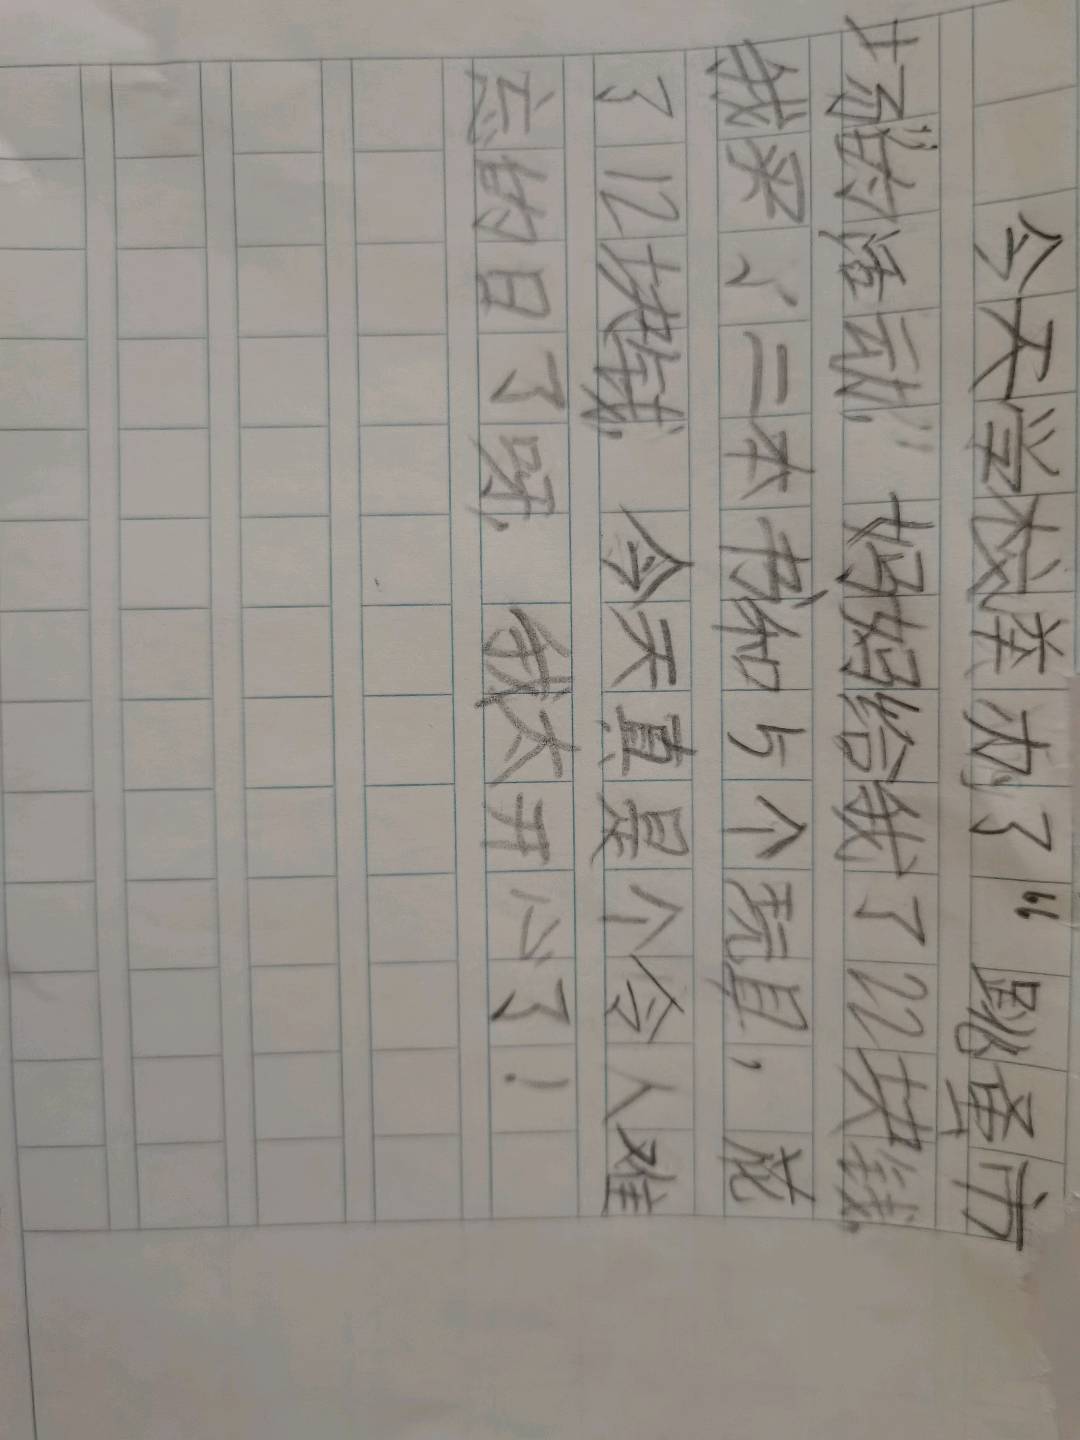 今天学校举办了“跳蚤市
场”的活动,妈妈给我了22块钱,
我买了二本书和5个玩具,花
了12块钱,今天真是个令人难
忘的日了呀,我太开心了!